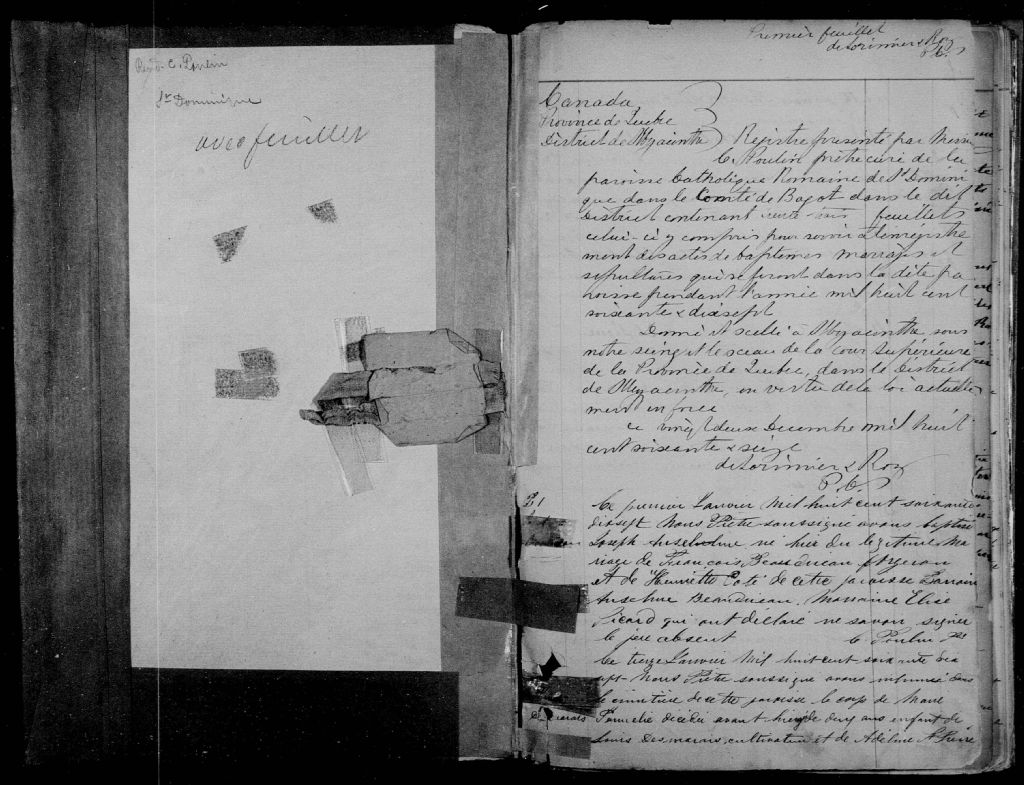 Revd. C. Poulin
St Dominique
avec feuillet
Premier feuillet
deLorimier & Roy
P. C. S.
Canada
Province de Quebec
District de St Hyacinthe
Registre presenté par Messire
C. Poulin prêtre curé de la
paroisse Catholique Romaine de St Domini
que dans le Comté de Bagot dans le dit
District contenant feuillets
celui-ci y compris pour servir à l'enregistre
ment des actes de baptemes mariages et
sepultures qui se feront dans la dite pa
roisse pendant l'année mil huit cent
soixante & dixsept
Donné et scellé à St Hyacinthe sous
notre seing et le sceau de la Cour Supérieure
de la Province de Quebec, dans le District
de St Hyacinthe, en vertu de la loi actuelle
ment en force
ce vingt deux Decembre mil huit
cent soixante & seize
deLorimier & Roy
P. C. S.
B 1
Le premier Janvier mil huit cent soixante
dixsept Nous Prêtre soussigné avons baptisé
Joseph Anselme né hier du légitime ma
riage de François Beaudreau forgeron
et de Henriette Coté de cette paroisse Parrain
Anselme Beaudreau. Marraine Elise
Picard qui ont déclaré ne savoir signer
le père absent C. Poulin Ptre
Le treize Janvier mil huit cent soixante dix
sept Nous Prêtre soussigné avons inhumé dans
le cimetière de cette paroisse le corps de Marie
Desmarais
décédée avant hier de cinq ans enfant de
Louis Desmarais, cultivateur et de Adeline St Pierre